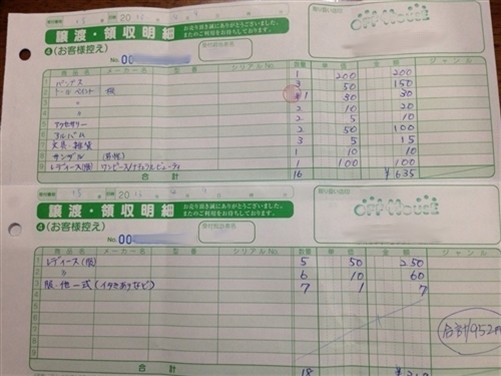 20
譲渡・領収明細
お売り頂き誠にありがとうございました。
またのご利用をお待ちしております。
OFF HOUSE
④(お客様控え)
No. 00
商品名 メーカー名 型番 シリアルNo 数量 単価 金額 ジャンル
1 200 200
3 50 150
1 30 30
2 10 20
アクセサリー 2 5 10
アルバム 2 50 100
文具・雑貨 3 5 15
サンダル 1 10 10
レディース(服) ワンピース/ナチュラルビューティ 1 100 100
合計 16 ¥635
20
譲渡・領収明細
お売り頂き誠にありがとうございました。
またのご利用をお待ちしております。
OFF HOUSE
④(お客様控え)
No. 00
商品名 メーカー名 型番 シリアルNo 数量 単価 金額 ジャンル
レディース(服) 5 50 250
〃 6 10 60
服・他一式(イタミありなど) 7 1 7
合計952円
合計 18